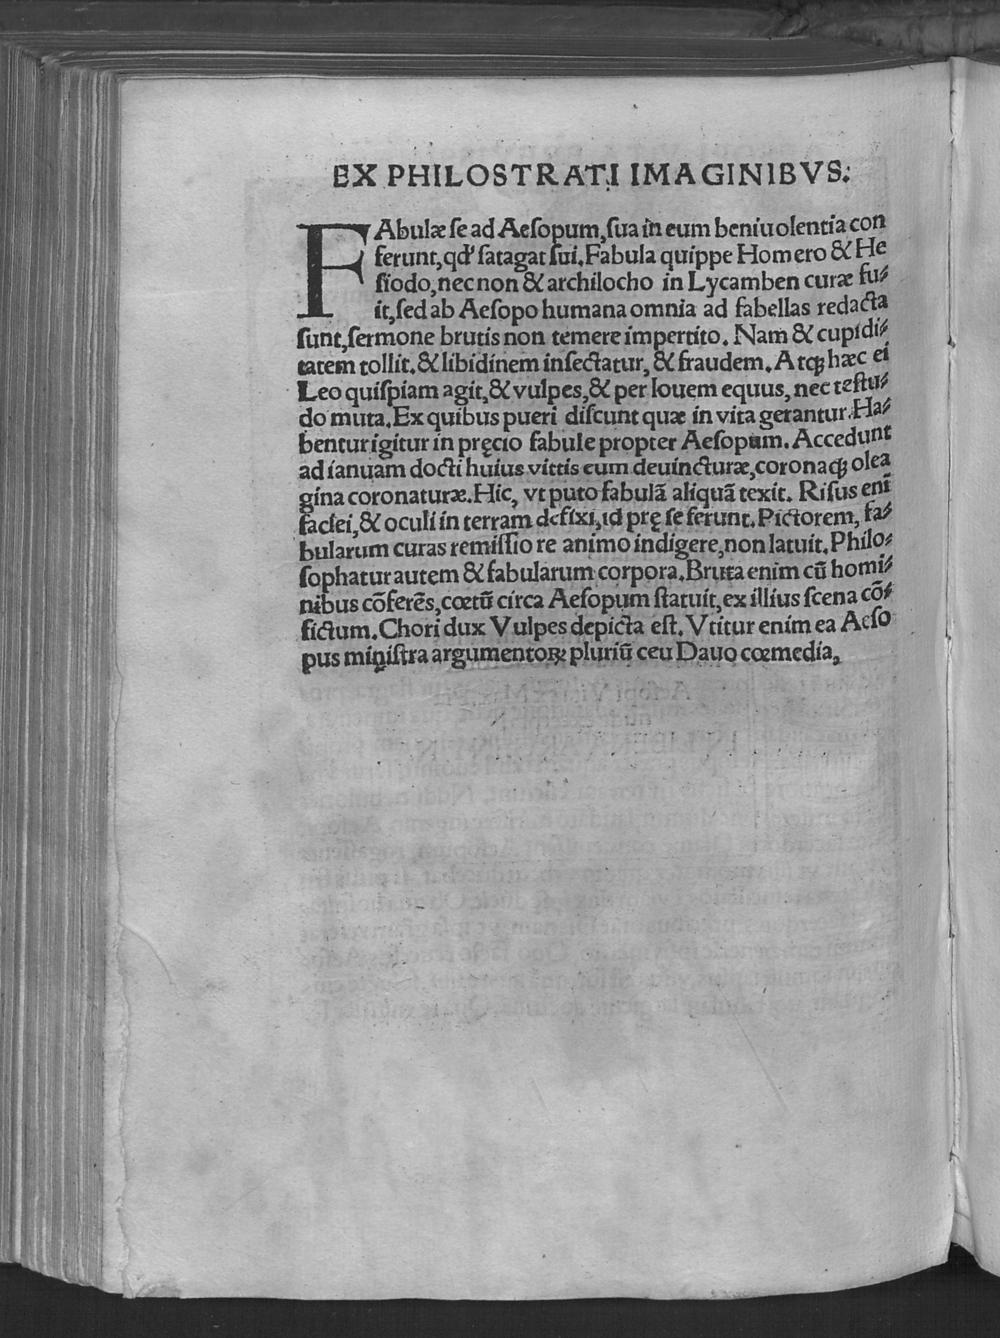 EX PHILOSTRATI IMAGINIBVS.
FAbulæ se ad Aesopum, sua in eum beniuolentia con
ferunt, qd' satagat sui. Fabula quippe Homero & He
siodo, nec non & archilocho in Lycamben curæ fu⸗
it, sed ab Aesopo humana omnia ad fabellas redacta
sunt, sermone brutis non temere impertito. Nam & cupidi⸗
tatem tollit, & libidinem insectatur, & fraudem. Atqꝫ hæc ei
Leo quispiam agit, & vulpes, & per Iouem equus, nec testu⸗
do muta. Ex quibus pueri discunt quæ in vita gerantur. Ha⸗
bentur igitur in pręcio fabule propter Aesopum. Accedunt
ad ianuam docti huius vittis eum deuincturæ, coronaqꝫ olea
gina coronaturæ. Hic, vt puto fabulã aliquã texit. Risus eni̅
faciei, & oculi in terram defixi, id prę se ferunt. Pictorem, fa⸗
bularum curas remissiore animo indigere, non latuit. Philo⸗
sophatur autem & fabularum corpora. Bruta enim cũ homi⸗
nibus cõferẽs, cœtũ circa Aesopum statuit, ex illius scena cõ⸗
fictum. Chori dux Vulpes depicta est. Vtitur enim ea Aeso
pus ministra argumentoꝝ pluriũ ceu Dauo comœdia,